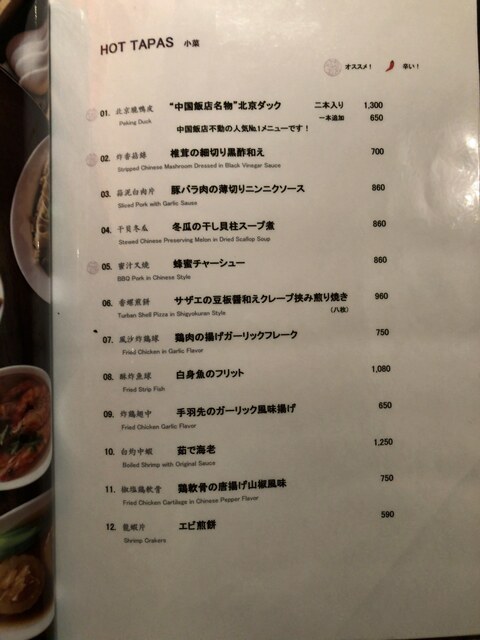 HOT TAPAS 小菜
オススメ! 辛い!
01. 北京填鴨皮 “中国飯店名物”北京ダック 二本入り 1,300
Peking Duck 一本追加 650
中国飯店不動の人気№1メニューです!
02. 炸香菇絲 椎茸の細切り黒酢和え 700
Stripped Chinese Mashroom Dressed in Black Vinegar Sauce
03. 蒜泥白肉片 豚バラ肉の薄切りニンニクソース 860
Sliced Pork with Garlic Sauss
04. 干貝冬瓜 冬瓜の干し貝柱スープ煮 860
Stewed Chinese Preserving Melon in Dried Scallop Soup
05. 蜜汁叉焼 蜂蜜チャーシュー 860
BBQ Pork in Chinese Style
06. 香螺煎餅 サザエの豆板醤和えクレープ挟み煎り焼き 960
Turban Shell Pizza in Shigyokuran Style (八枚)
07. 風沙炸鶏球 鶏肉の揚げガーリックフレーク 750
Fried Chicken in Garlic Flavor
08. 酥炸魚球 白身魚のフリット 1,080
Fried Strip Fish
09. 炸鶏翅中 手羽先のガーリック風味揚げ 650
Fried Chicken Garlic Flavor
10. 白灼中蝦 茹で海老 1,250
Boiled Shrimp with Original Sauce
11. 椒塩鶏軟骨 鶏軟骨の唐揚げ山椒風味 750
Fried Chicken Cartilage in Chinese Pepper Flavor
12. 龍蝦片 エビ煎餅 590
Shrimp Crakers